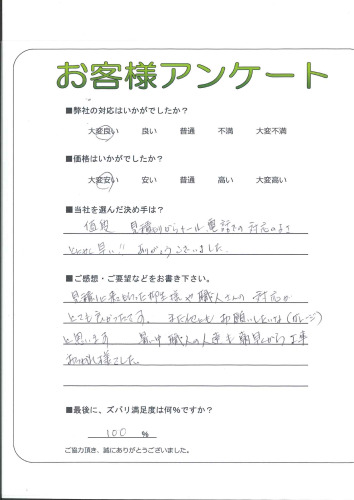 お客様アンケート
■弊社の対応はいかがでしたか?
大変良い 良い 普通 不満 大変不満
■価格はいかがでしたか?
大変安い 安い 普通 高い 大変高い
■当社を選んだ決め手は?
値段 見積りからメール 電話での 対応のよさ
とにかく早い!! ありがとうございました。
■ご感想・ご要望などをお書き下さい。
見積りに来ていただいた 様や 職人さんの 対応が
とても良かったです。 また他にも お願いしたいな(ガレージ)
と思います 暑い中 職人の人達も 朝早くから工事
お疲れ様でした。
■最後に、ズバリ満足度は何%ですか?
100 %
ご協力頂き、誠にありがとうございました。